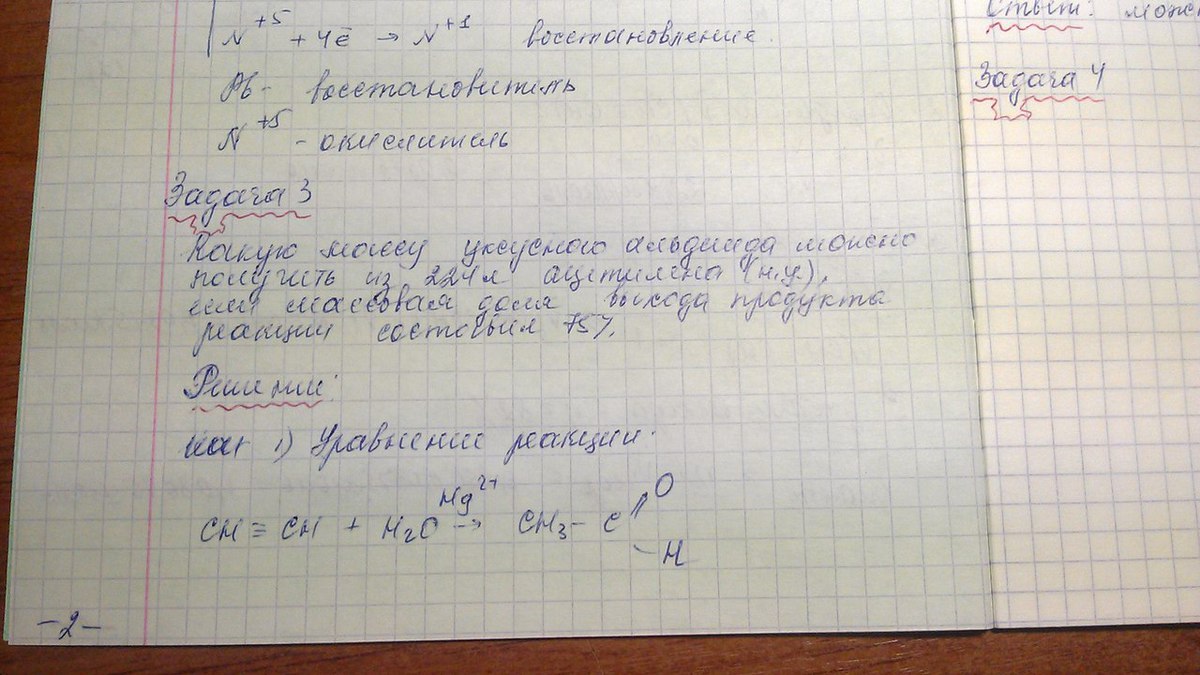 N⁺⁵ + 4ē → N⁺¹ восстановление.
Pb - восстановитель
N⁺⁵ - окислитель
Задача 3
Какую массу уксусного альдегида можно
получить из 224л ацетилена (н.у),
если массовая доля выхода продукта
реакции составил 75%.
Решение:
1) Уравнение реакции:
CH ≡ CH + H₂O →(Hg²⁺) CH₃ - C
O
H
-2-
Ответ: можн
Задача 4